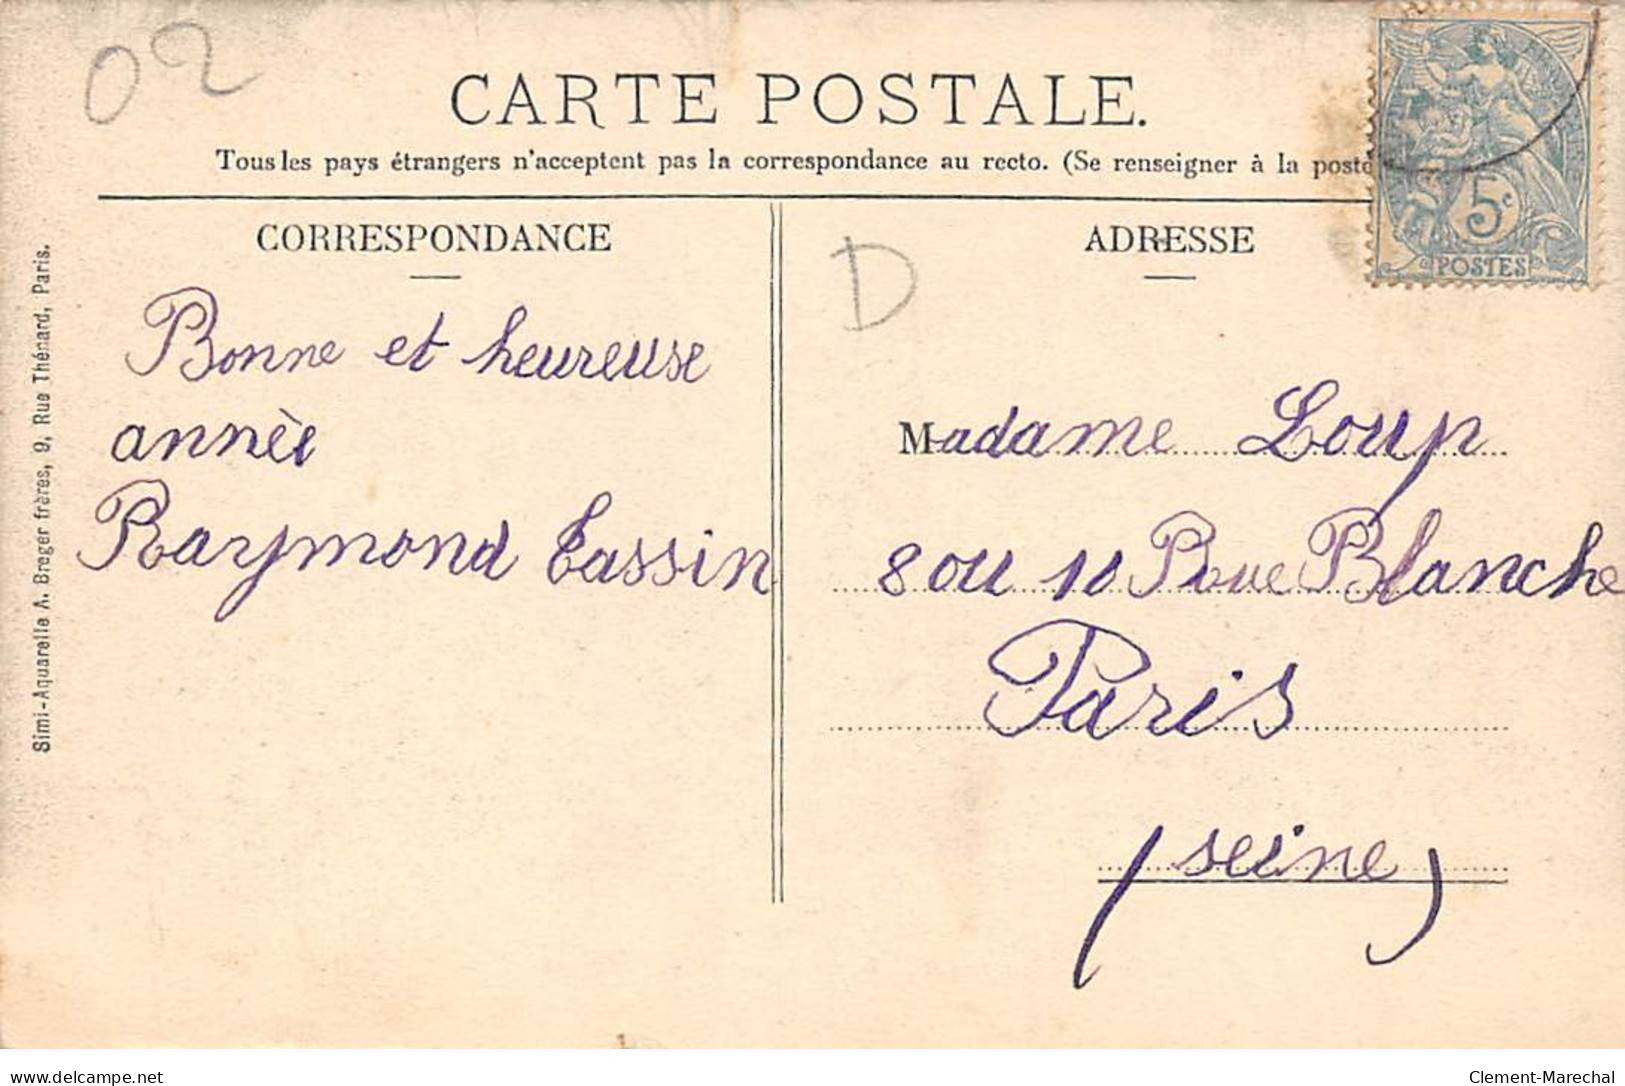 02
CARTE POSTALE.
Tous les pays étrangers n'acceptent pas la correspondance au recto. (Se renseigner à la poste
5c
POSTES
CORRESPONDANCE
D
ADRESSE
Bonne et heureuse
année
Raymond Tassin
Madame Loup
8 ou 10 Rue Blanche
Paris
(seine)
Simi-Aquarelle A. Breger frères, 9, Rue Thénard, Paris.
delcampe.net
Clement-Marechal